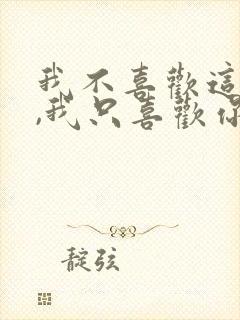 我不喜歡這
,我只喜歡你
靛弦